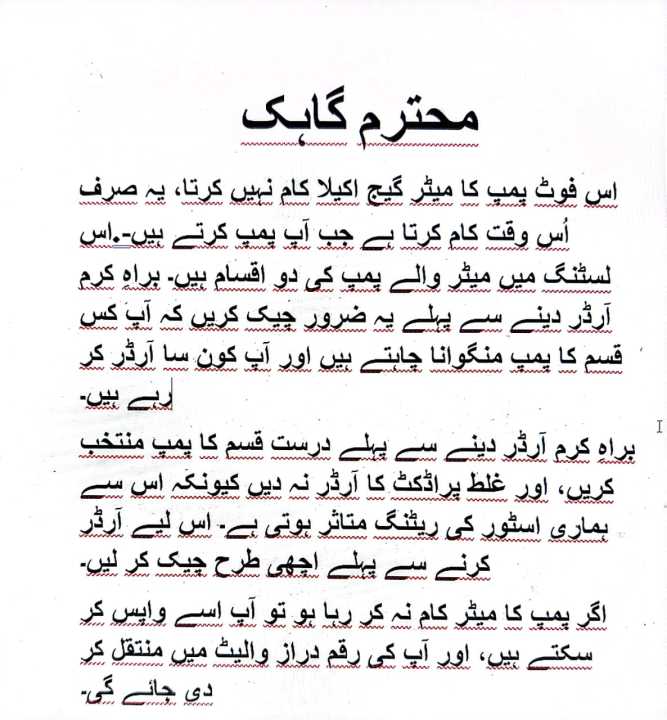 محترم گاہک
اس فوٹ پمپ کا میٹر گیج اکیلا کام نہیں کرتا، یہ صرف
اُس وقت کام کرتا ہے جب آپ پمپ کرتے ہیں-.اس
لسٹنگ میں میٹر والے پمپ کی دو اقسام ہیں۔ براہِ کرم
آرڈر دینے سے پہلے یہ ضرور چیک کریں کہ آپ کس
قسم کا پمپ منگوانا چاہتے ہیں اور آپ کون سا آرڈر کر
رہے ہیں۔
براہ کرم آرڈر دینے سے پہلے درست قسم کا پمپ منتخب
کریں، اور غلط پراڈکٹ کا آرڈر نہ دیں کیونکہ اس سے
ہماری اسٹور کی ریٹنگ متاثر ہوتی ہے۔ اس لیے آرڈر
کرنے سے پہلے اچھی طرح چیک کر لیں۔
اگر پمپ کا میٹر کام نہ کر رہا ہو تو آپ اسے واپس کر
سکتے ہیں، اور آپ کی رقم دراز والیٹ میں منتقل کر
دی جائے گی۔